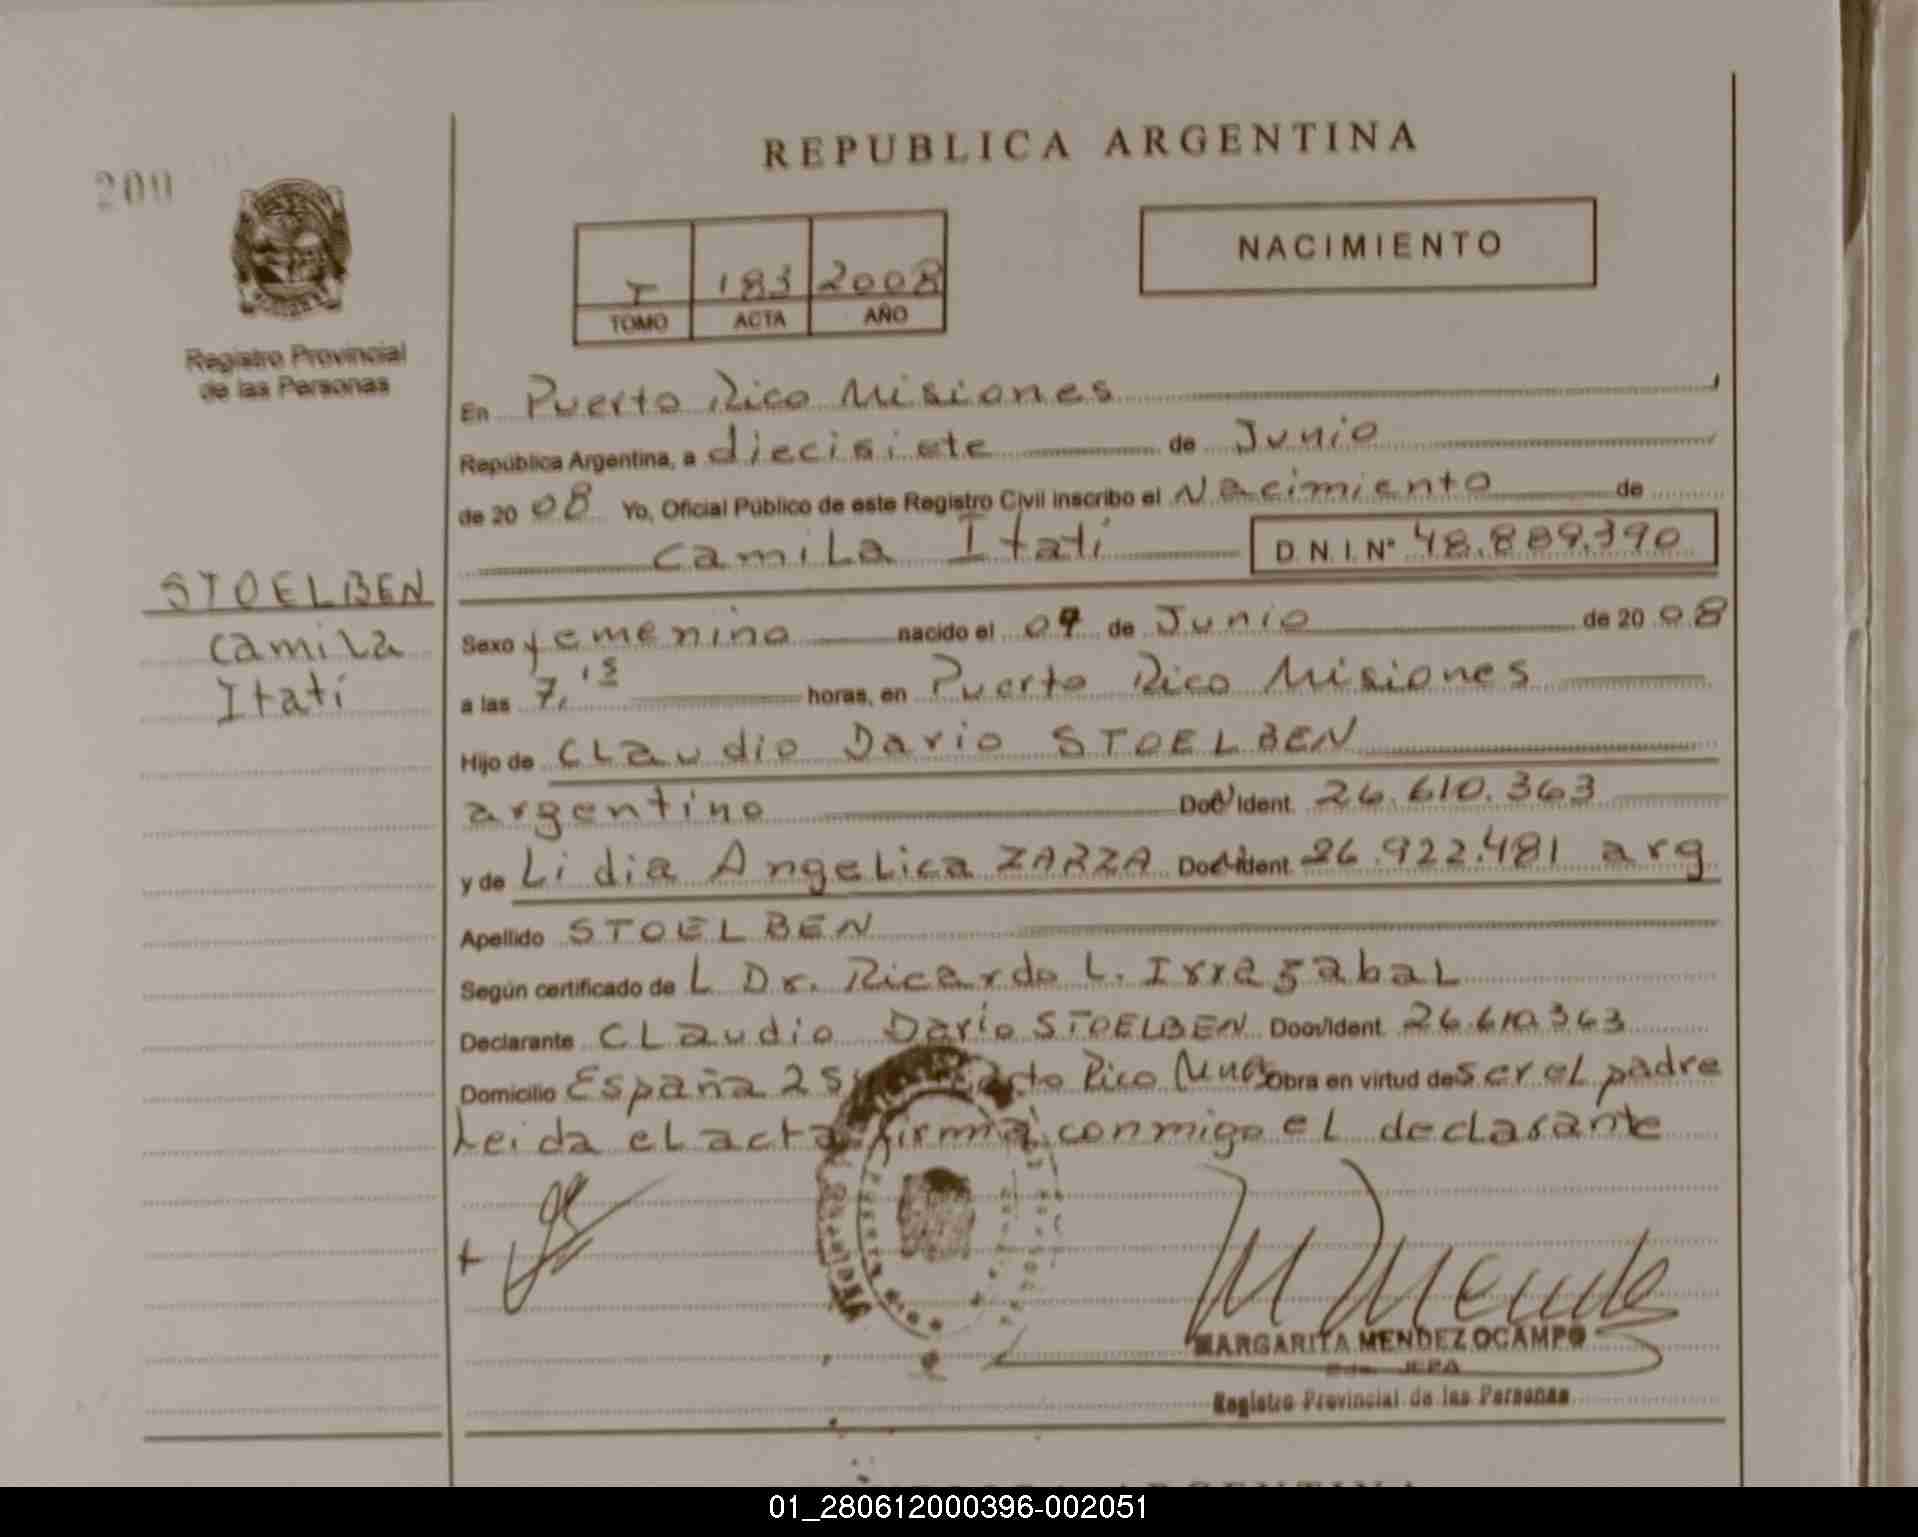 REPUBLICA ARGENTINA
200
NACIMIENTO
I 183 2008
TOMO ACTA AÑO
Registro Provincial
de las Personas
En Puerto Rico Misiones
República Argentina, a diecisiete de Junio
de 2008 Yo, Oficial Público de este Registro Civil inscribo el Nacimiento de
Camila Itatí D.N.I. Nº 48.889.390
STOELBEN
Camila
Itatí
Sexo femenino nacido el de Junio de 2008
a las 7,15 horas, en Puerto Rico Misiones
Hijo de Claudio Dario STOELBEN
argentino Doc Ident. 26.610.363
y de Lidia Angelica ZARZA Doc Ident. 26.922.481 arg
Apellido STOELBEN
Según certificado de L Dr. Ricardo L. Irrazabal
Declarante Claudio Darío STOELBEN Doc Ident. 26.610.363
Domicilio España Rico Obra en virtud de ser el padre
Leida el acta firma conmigo el declarante
MARGARITA MENDEZ OCAMPO
Registro Provincial de las Personas
01_280612000396-002051